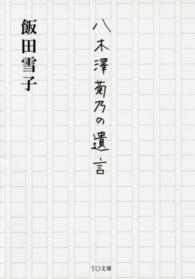 八木澤菊乃の遺言
飯田雪子
TO文庫